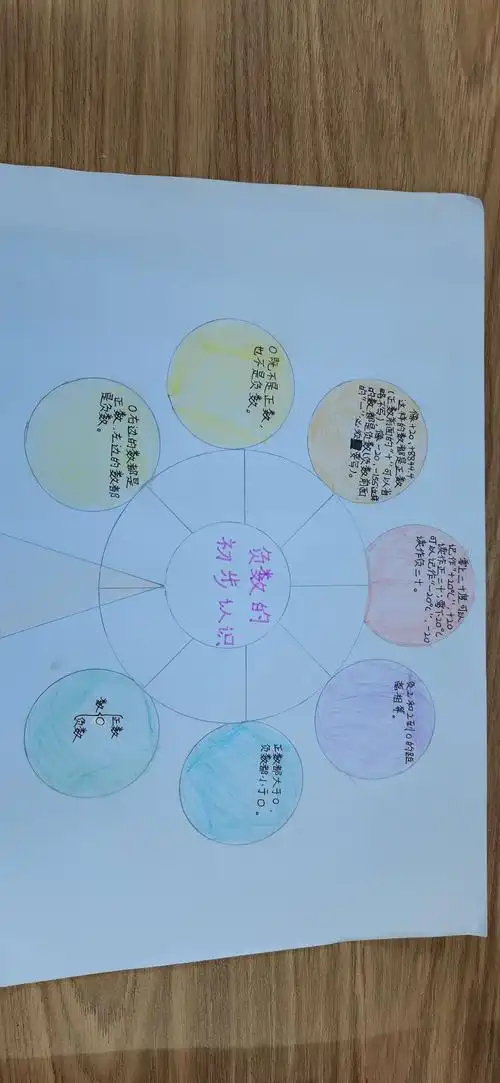 负数的
初步认识
0右边的数都是
正数,左边的数都
是负数。
0既不是正数,
也不是负数。
像+20,+8844.4
这样的数都是正数
(正数前面的"+"可以省
略不写)像-20,-155这样
的数都是负数(负数前面
的"-"必须要写)。
零上二十度可以
记作"+20℃",+20
读作正二十;零下20℃
可以记作"-20℃",-20
读作负二十。
负2和2到0的距
离相等。
正数都大于0,
负数都小于0。
正数
数 0
负数